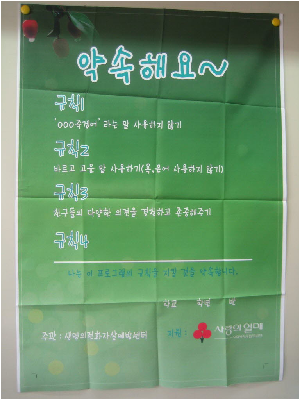 약속해요~
규칙1
'OOO죽겠어' 라는 말 사용하지 않기
규칙2
바르고 고운 말 사용하기(욕, 은어 사용하지 않기)
규칙3
친구들의 다양한 의견을 경청하고 존중해주기
규칙4
나는 이 프로그램의 규칙을 지킬 것을 약속합니다.
학교 학년 반
주관 : 생명의전화자살예방센터
지원 : 사랑의열매